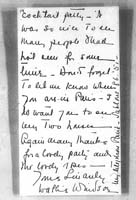 "Cocktail party - it
was so nice to see
many people I had
not seen for some
time - Don't forget
to let me know when
you are in Paris - I
do want you to see
my two houses
Again many thanks
for a lovely party and
the lovely
Yours Sincerely
Wallis Windsor